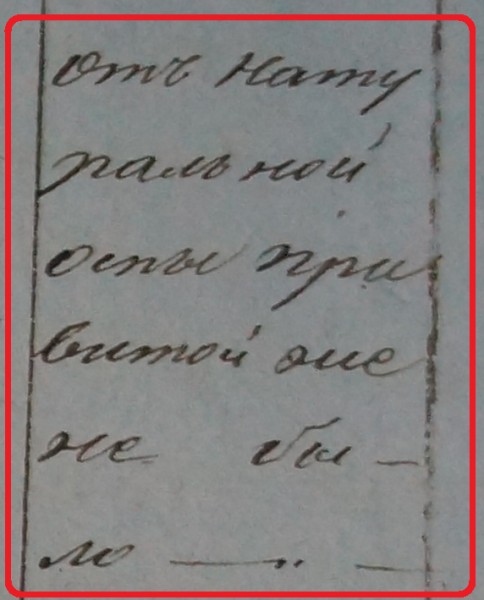 отъ нату
ральной
оспы при
витой же
не бы -
ло — „ —